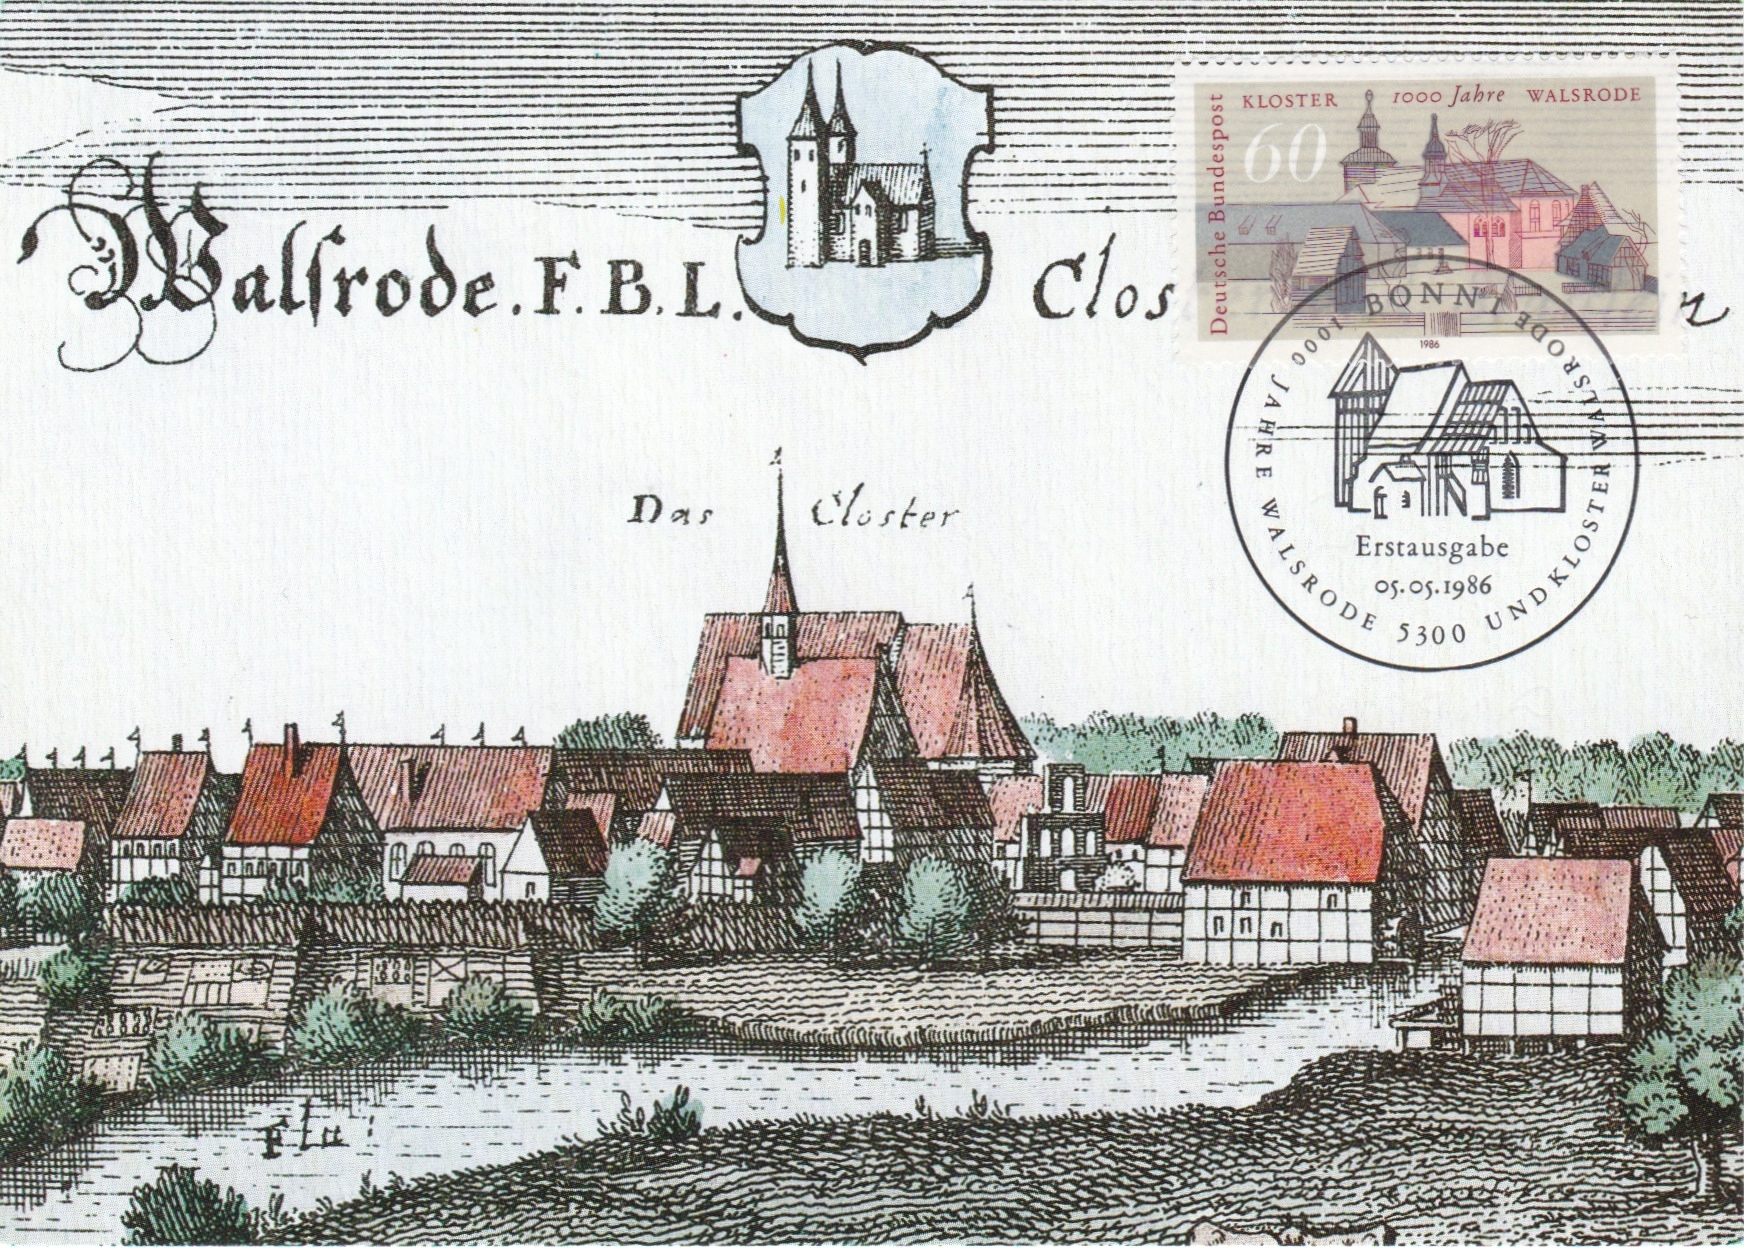 Walſrode. F. B. L.
Clos
KLOSTER 1000 Jahre WALSRODE
60
Deutsche Bundespost
1986
BONN 1
1000 JAHRE WALSRODE 5300 UND KLOSTER WALSRODE
Erstausgabe
05.05.1986
Das Closter
Flu: